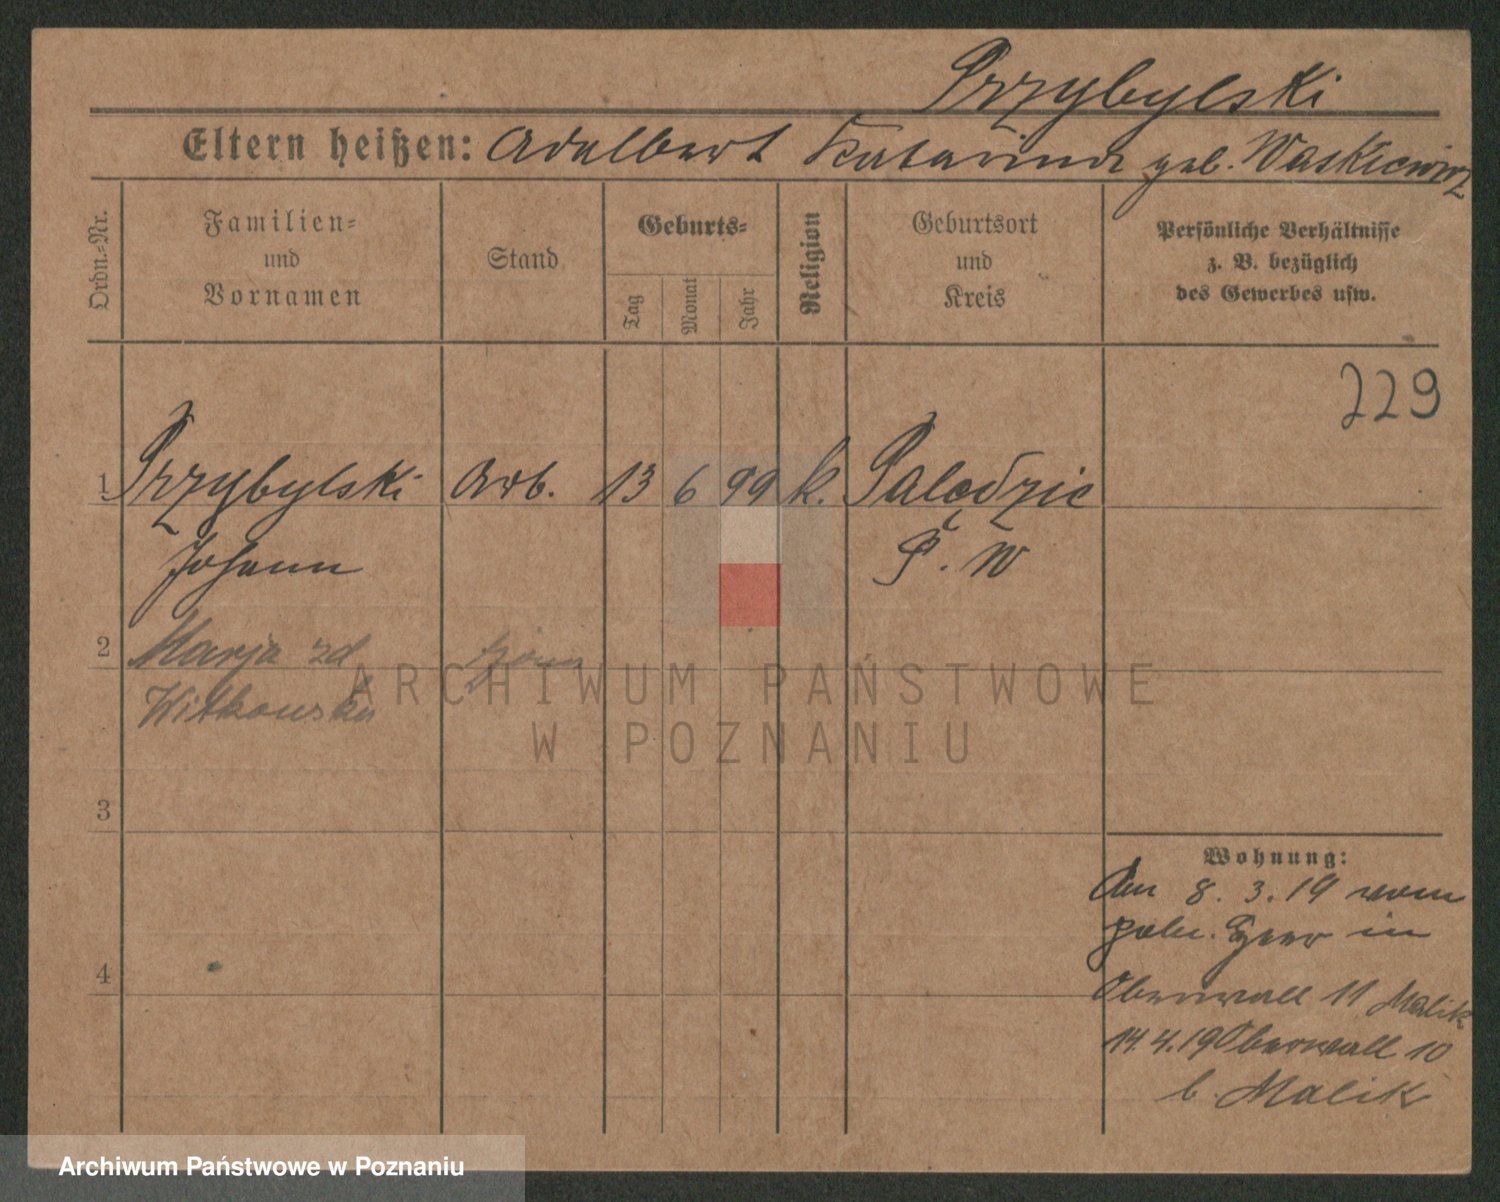 Przybylski
Eltern heißen: Adalbert Katarina geb. Waskiewicz
Ordn.-Nr.
Familien-
und
Vornamen
Stand
Geburts-
Tag
Monat
Jahr
Religion
Geburtsort
und
Kreis
Persönliche Verhältnisse
z. B. bezüglich
des Gewerbes usw.
229
1 Przybylski Arb. 13 6 99 k. Palędzie
Johann P. W
2 Marja zd żona
Witkowska
ARCHIWUM PAŃSTWOWE
W POZNANIU
3
Wohnung:
Am 8. 3. 19 vom
poln. Heer in
4
Oberwall 11 Malik
14. 4. 19 Oberwall 10
b. Malik
Archiwum Państwowe w Poznaniu